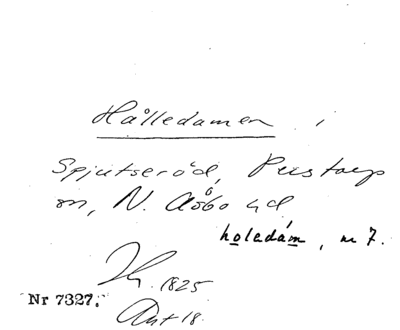 Hålledamen i
Spjutseröd, Perstorp
sn, N. Åsbo hd
holadám, m 7.
1825
Nr 7327.
18.